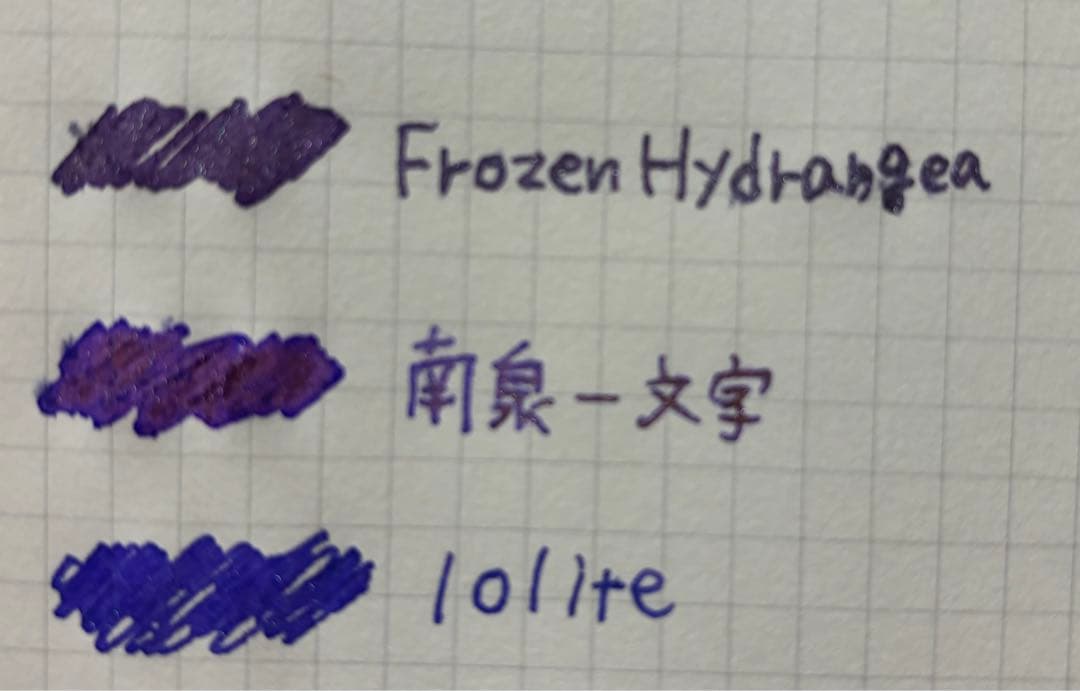 Frozen Hydrangea
南泉一文字
Iolite